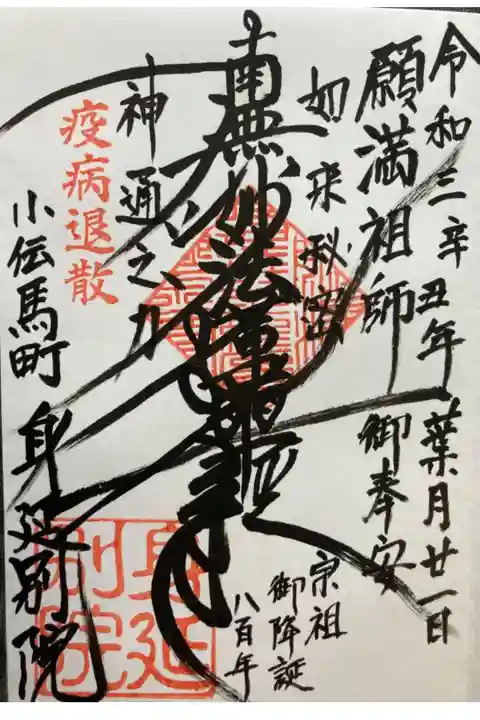 令和三辛丑年葉月廿一日
願満祖師 御奉安
如来秘密
宗祖
御降誕
八百年
南無妙法蓮華経
神通之力
疫病退散
小伝馬町 身延別院
身延
別院